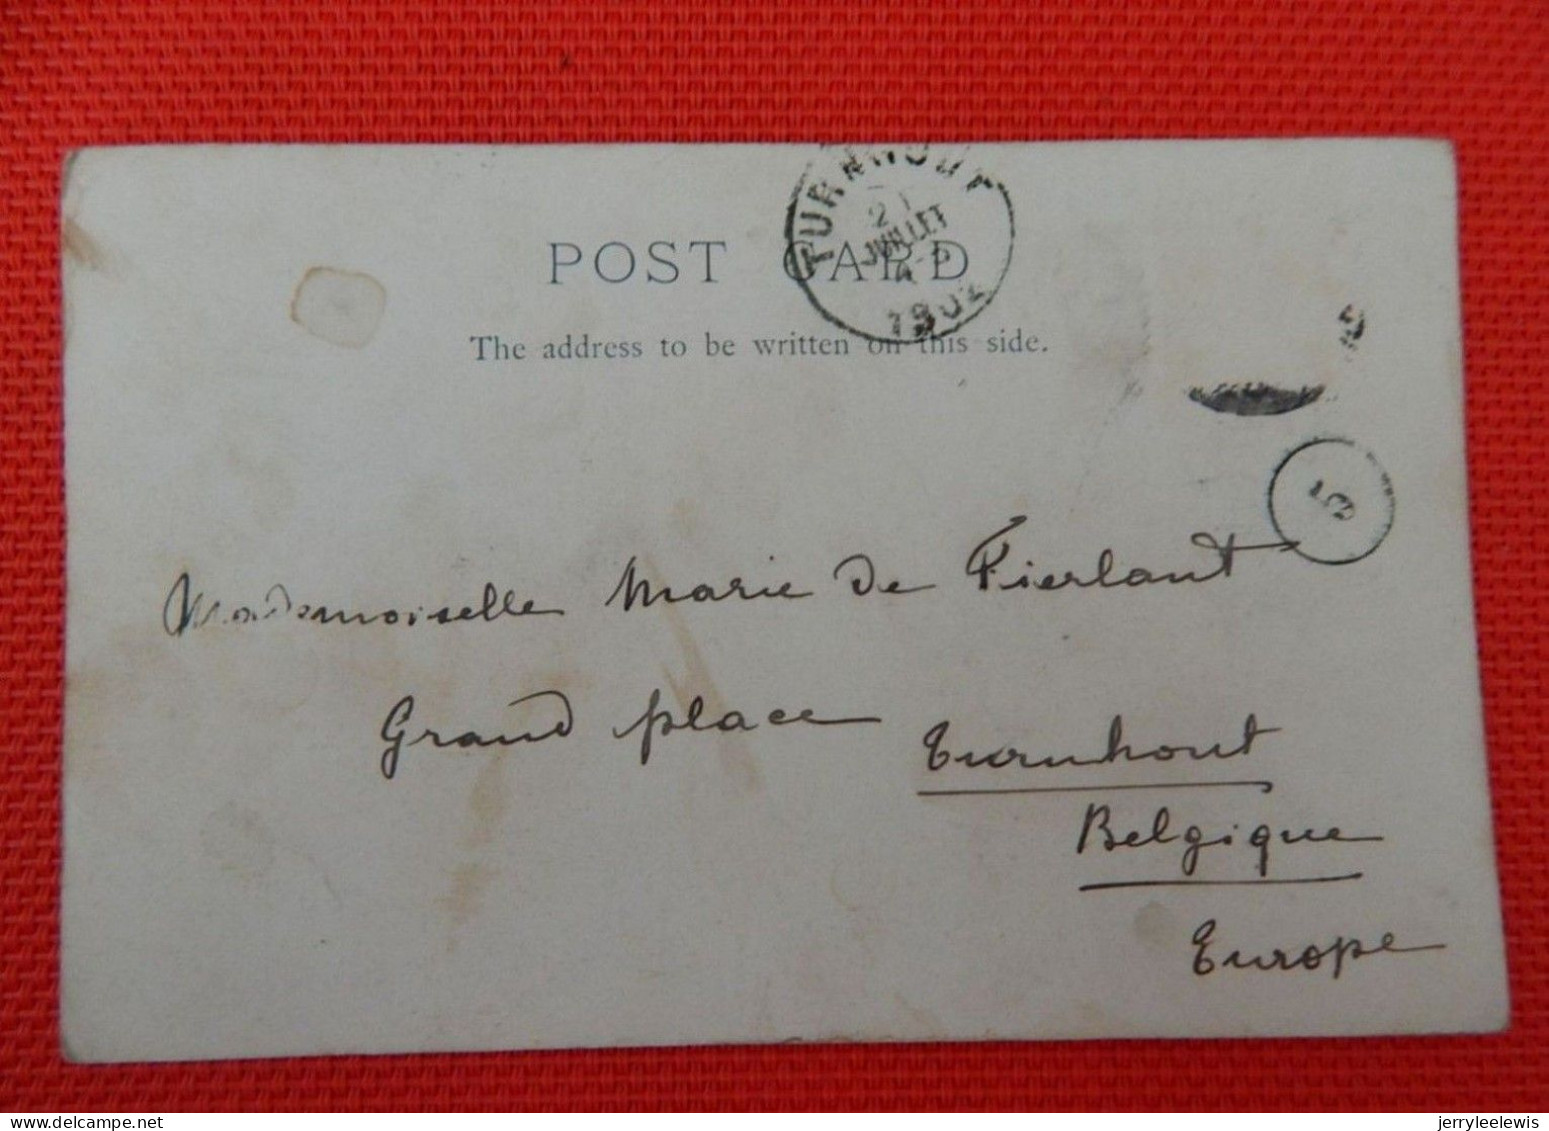 TURNHOUT
21
JUILLET
1902
POST CARD
The address to be written on this side.
5
Mademoiselle Marie de Fierlant
Grand place Turnhout
Belgique
Europe
www.delcampe.net
jerryleelewis